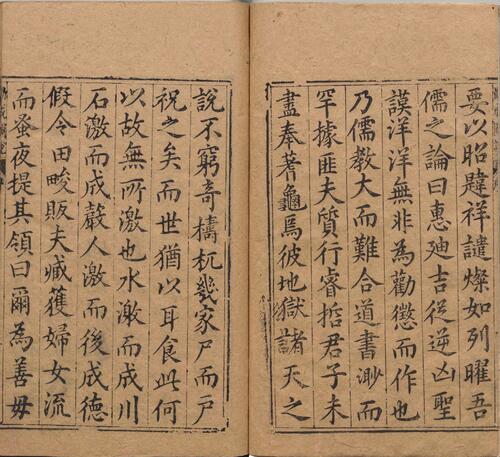 要以昭韙祥譴燦如列曜吾
儒之論曰惠廸吉從逆凶聖
謨洋洋無非為勸懲而作也
乃儒教大而難合道書渺而
罕據匪夫質行睿哲君子未
盡奉蓍龜焉彼地獄諸天之
說不窮奇檮杌幾家尸而戶
祝之矣而世猶以耳食此何
以故無所激也水激而成川
石激而成聲人激而後成德
假令田畯販夫臧獲婦女流
而蚤夜提其領曰爾為善毋